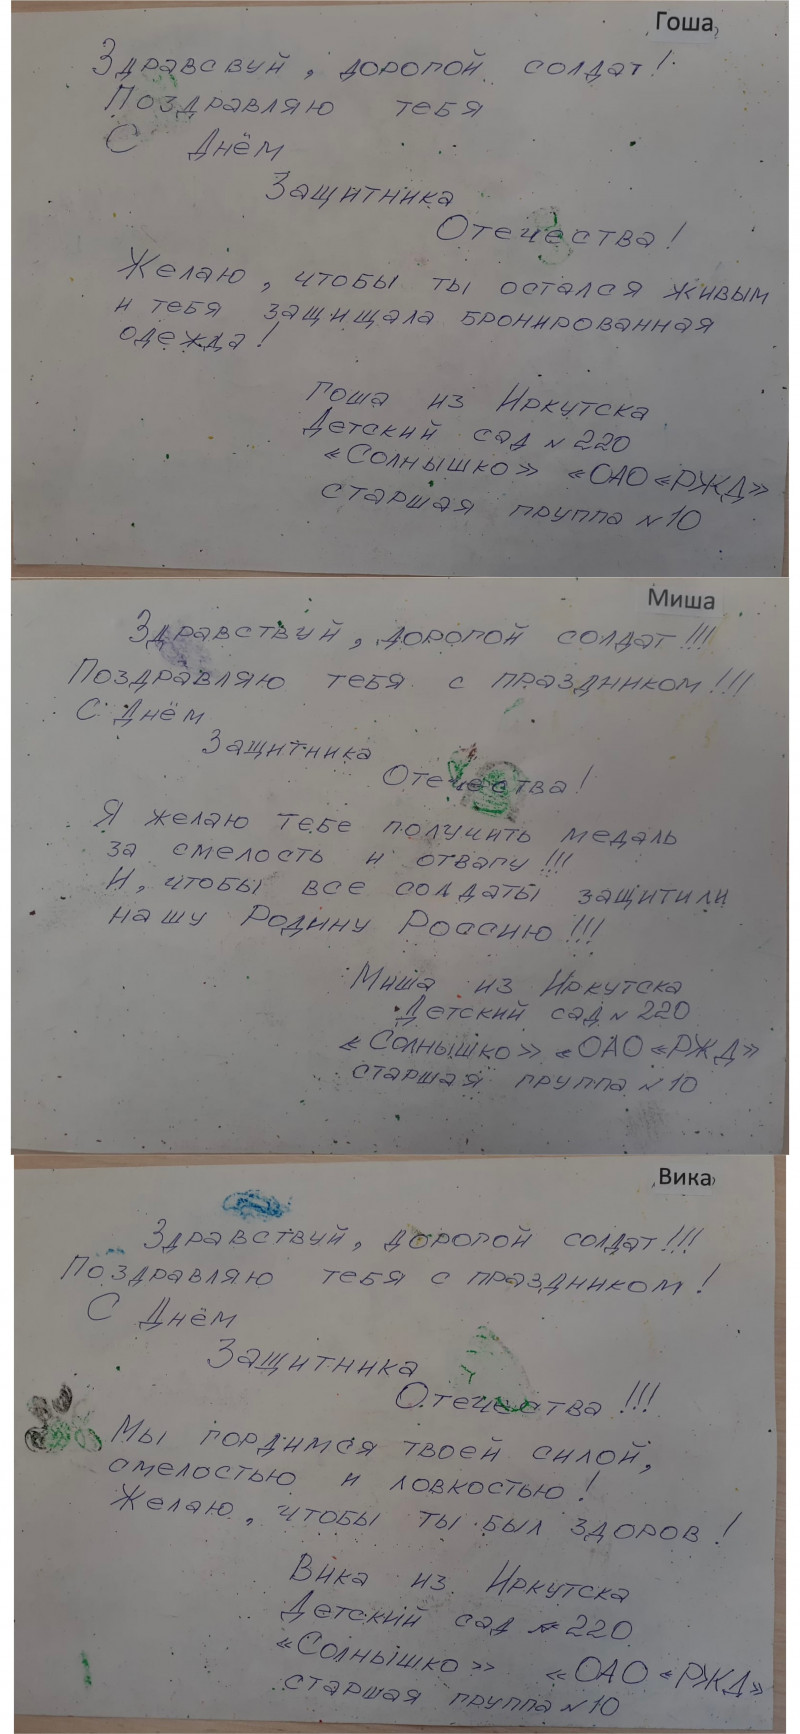 Гоша
Здравсвуй, дорогой солдат!
Поздравляю тебя
С Днём
Защитника
Отечества!
Желаю, чтобы ты остался живым
и тебя защищала бронированная
одежда!
Гоша из Иркутска
Детский сад № 220
«Солнышко» «ОАО «РЖД»
старшая группа № 10
Миша
Здравствуй, дорогой солдат!!!
Поздравляю тебя с праздником!!!
С Днём
Защитника
Отечества!
Я желаю тебе получить медаль
за смелость и отвагу!!!
И, чтобы все солдаты защитили
нашу Родину Россию!!!
Миша из Иркутска
Детский сад № 220
«Солнышко» «ОАО «РЖД»
старшая группа № 10
Вика
Здравствуй, дорогой солдат!!!
Поздравляю тебя с праздником!
С Днём
Защитника
Отечества!!!
Мы гордимся твоей силой,
смелостью и ловкостью!
Желаю, чтобы ты был здоров!
Вика из Иркутска
Детский сад № 220
«Солнышко» «ОАО «РЖД»
старшая группа № 10